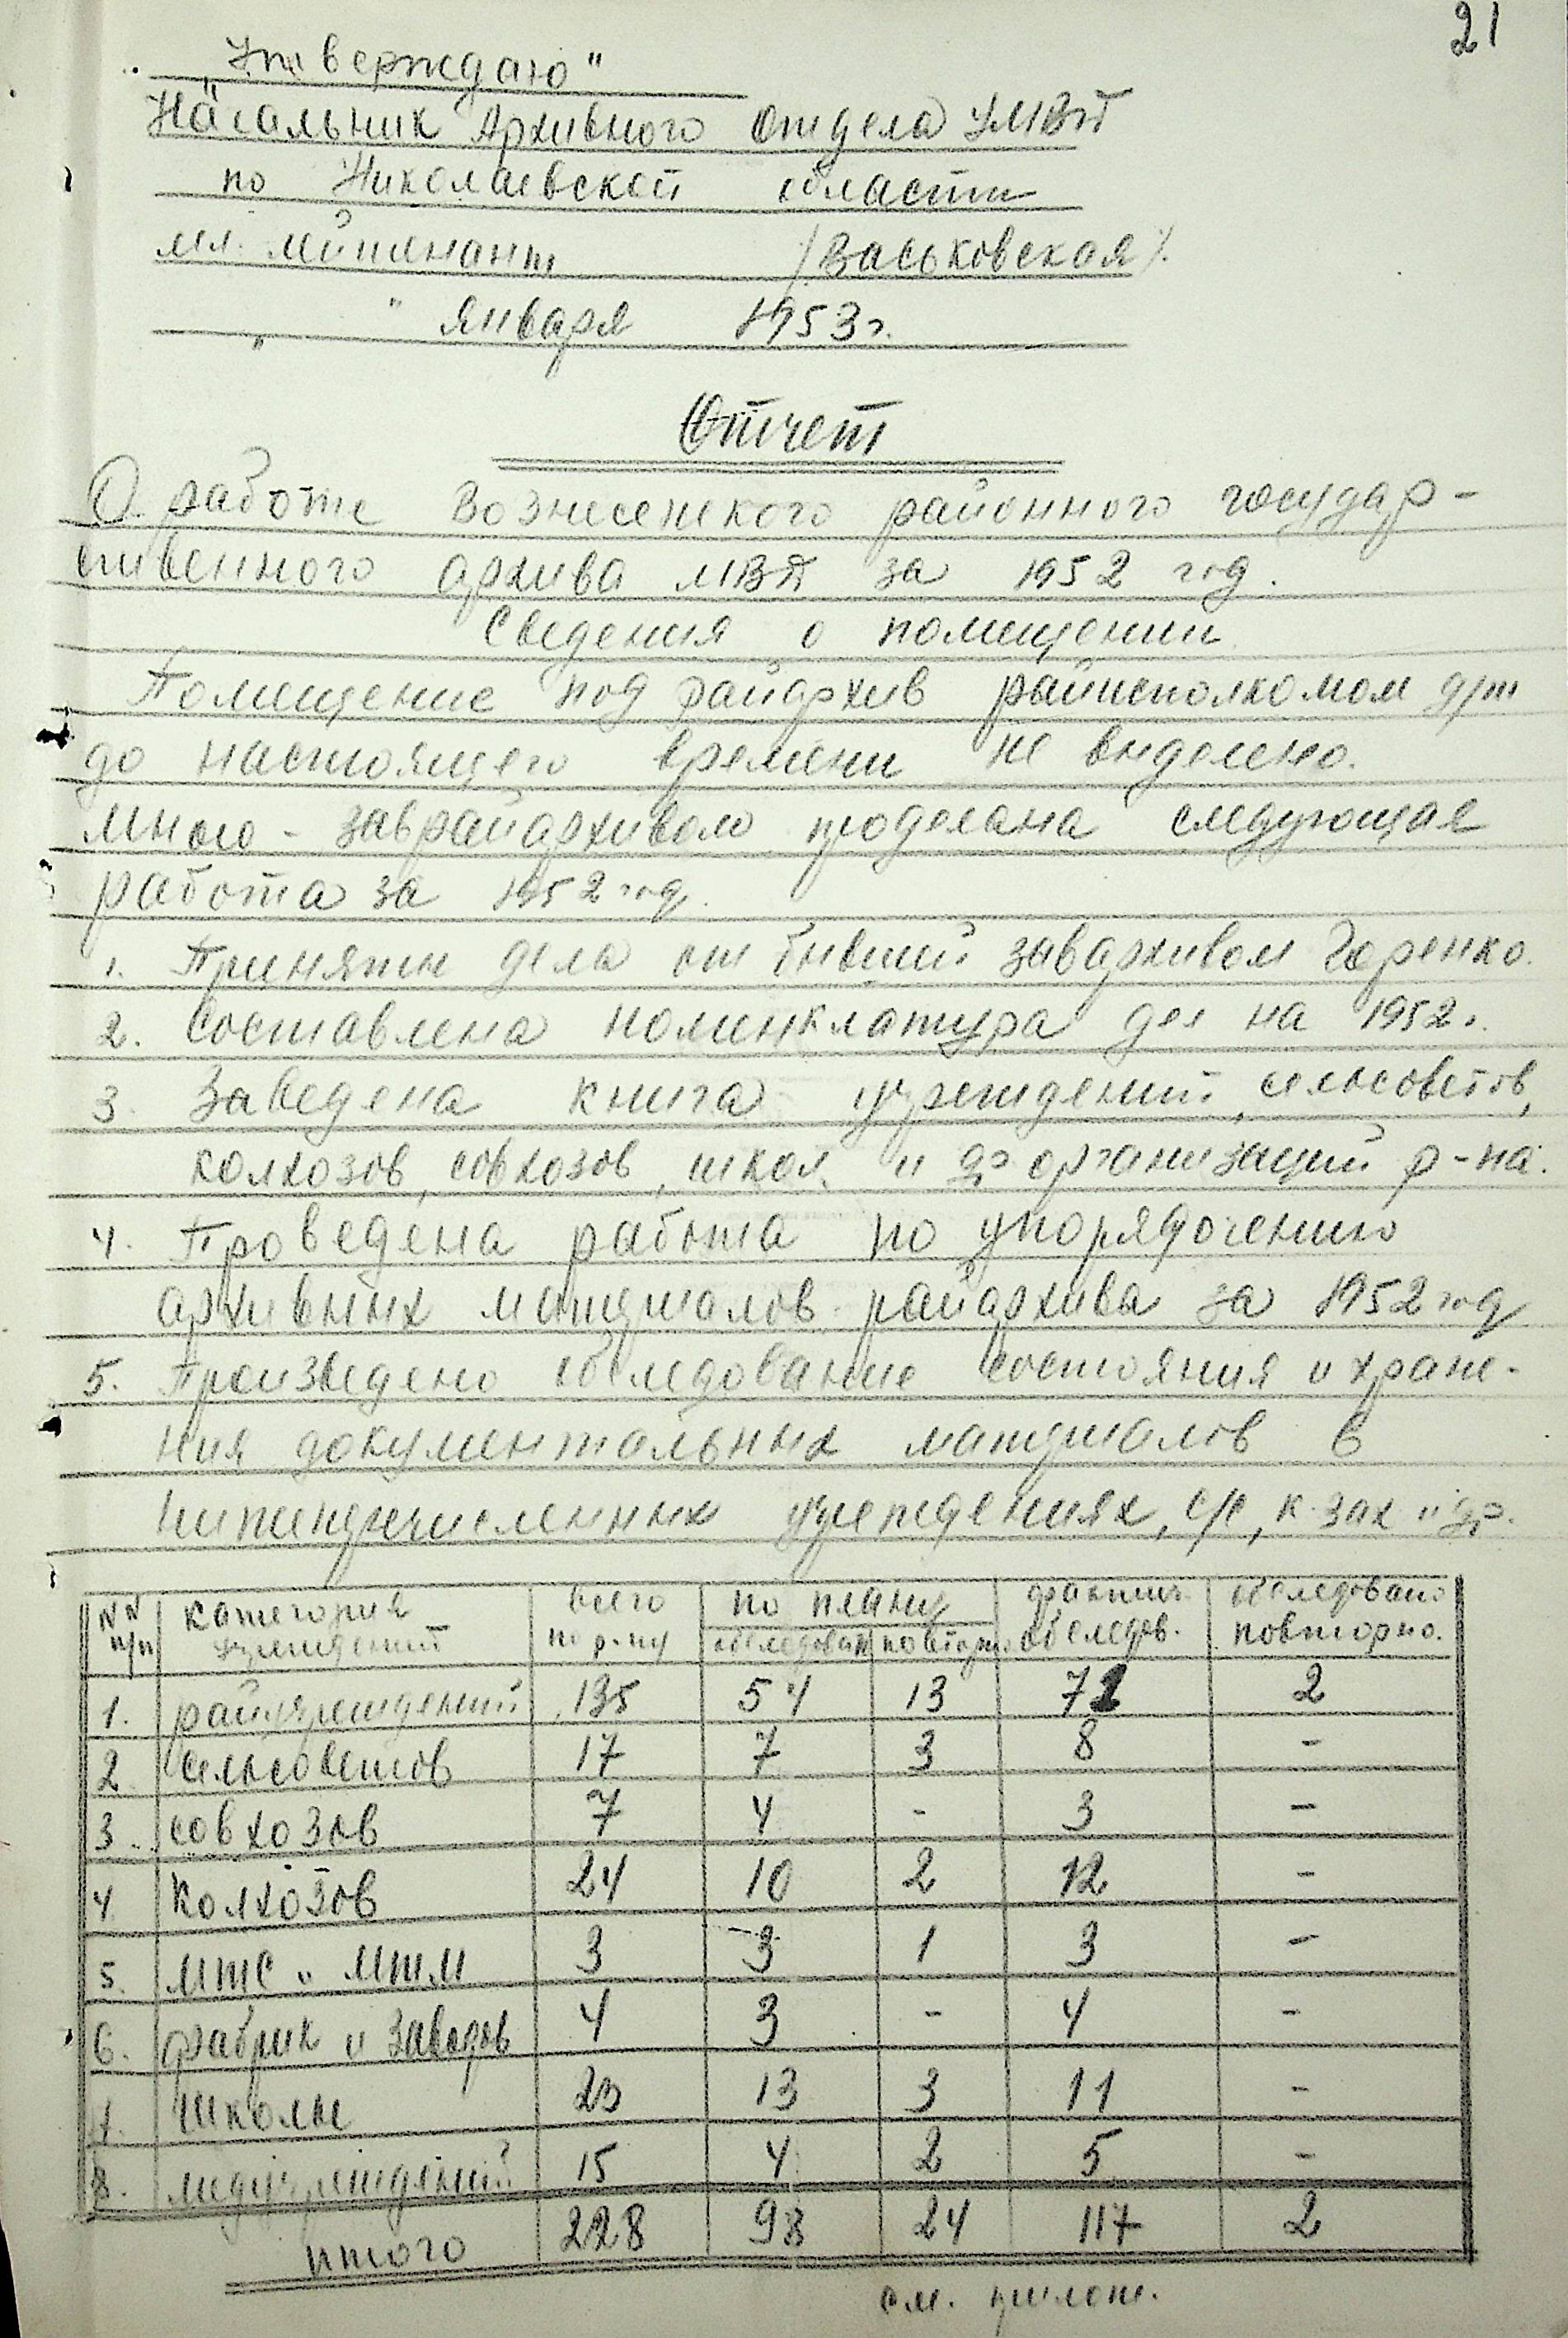 21
„Утверждаю"
Начальник Архивного Отдела УМВД
по Николаевской области
мл. лейтенант /Васьковская/.
„ " января 1953 г.
Отчет
О работе Вознесенского районного государ-
ственного архива МВД за 1952 год.
Сведения о помещении
Помещение под райархив райисполкомом д/т
до настоящего времени не выделено.
Мною - заврайархивом проделана следующая
работа за 1952 год.
1. Приняты дела от бывшей завархивом Горенко.
2. Составлена номенклатура дел на 1952 г.
3. Заведена книга учреждений, сельсоветов,
колхозов, совхозов, школ и др организаций р-на.
4. Проведена работа по упорядочению
архивных материалов райархива за 1952 год
5. Произведено обследование состояния и хране-
ния документальных материалов в
нижеперечисленных учреждениях, с/с, к-зах и др.
№№ п/п категория учреждений всего по р-ну по плану фактич. обследов. обследовано повторно.
обследован повторно
1. райучреждений 135 54 13 71 2
2 сельсоветов 17 7 3 8 -
3. совхозов 7 4 - 3 -
4. колхозов 24 10 2 12 -
5. МТС и МТМ 3 3 1 3 -
6. фабрик и заводов 4 3 - 4 -
7. школы 23 13 3 11 -
8. медучреждений 15 4 2 5 -
итого 228 98 24 117 2
см. прилож.